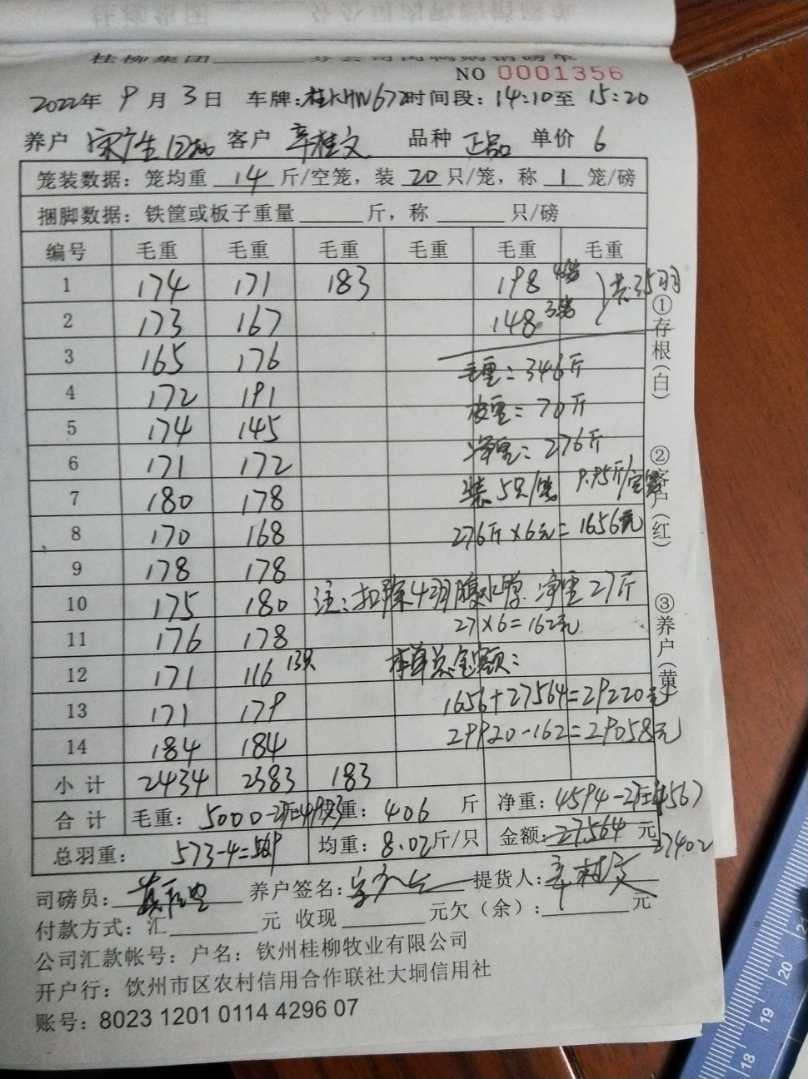 桂柳集团______分公司肉鸭购销磅单
NO 0001356
2022年 9 月 3 日 车牌:桂KHW672时间段:14:10至 15:20
养户 客户 辛桂文 品种 正品 单价 6
笼装数据:笼均重 14 斤/空笼,装 20 只/笼,称 1 笼/磅
捆脚数据:铁筐或板子重量______斤,称______只/磅
编号 毛重 毛重 毛重 毛重 毛重 毛重
1 174 171 183 198 4笼 共35羽
2 173 167 148 3笼
3 165 176
毛重:346斤
4 172 191
皮重:70斤
5 174 145
净重:276斤
6 171 172
7 180 178 装5只/笼 9.95斤/空笼
8 170 168 276斤×6元=1656元
9 178 178
10 175 180 注:扣除4羽腹水鸭 净重27斤
11 176 178 27×6=162元
12 171 116 13只 本单总金额:
13 171 179 1656+27564=29220元
14 184 184 29220-162=29058元
小计 2434 2383 183
合计 毛重:5000 皮重:406 斤 净重:4594-27斤=4567
总羽重: 573-4=569 均重:8.02斤/只 金额:27564 元
27402
司磅员: 养户签名: 提货人:辛桂文
付款方式:汇______元 收现______元欠(余):______元
公司汇款帐号:户名:钦州桂柳牧业有限公司
开户行:钦州市区农村信用合作联社大垌信用社
账号:8023 1201 0114 4296 07
①存根(白)
②客户(红)
③养户(黄
18 19 20